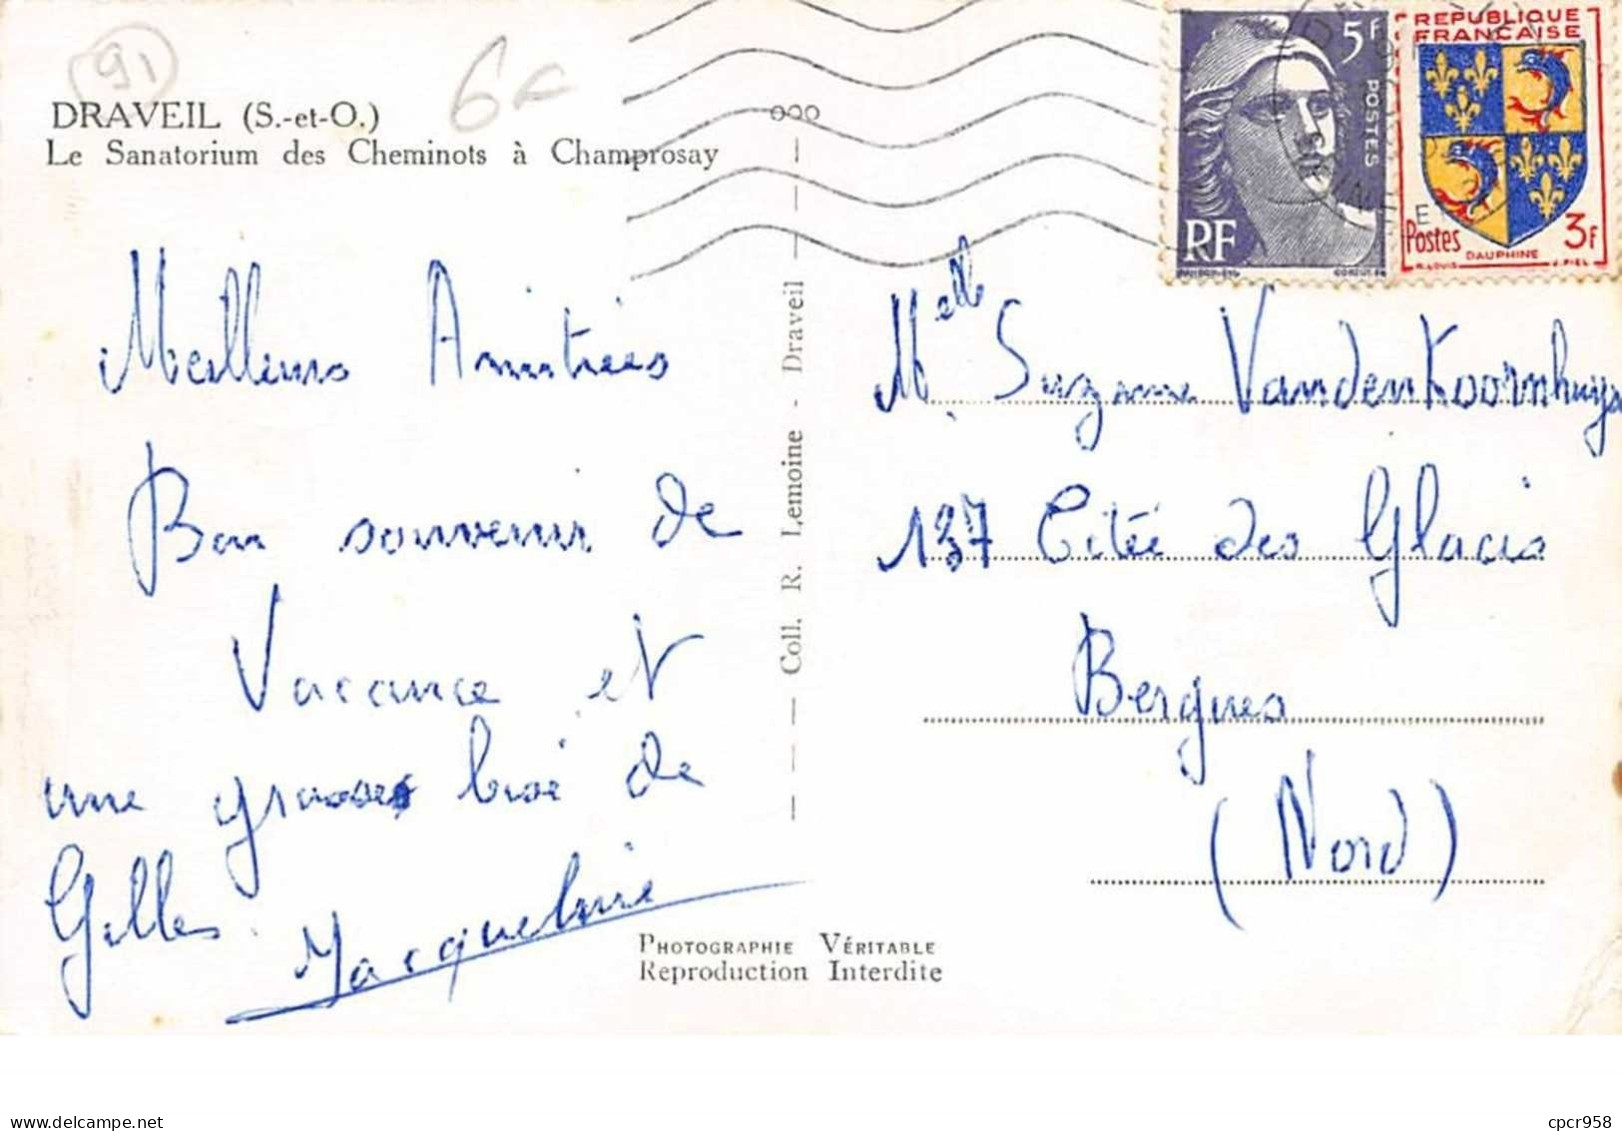 91
6€
DRAVEIL (S.-et-O.)
Le Sanatorium des Cheminots à Champrosay
Meilleurs Amitiées
Bon souvenir de
Vacance et
une grosses bisé de
Gilles.
Jacqueline
Coll. R. Lemoine - Draveil
PHOTOGRAPHIE VÉRITABLE
Reproduction Interdite
5F
POSTES
RF
REPUBLIQUE
FRANCAISE
Postes
3F
DAUPHINE
Melle Suzanne Vandenkoornhuyse
137 Citée des Glacis
Bergues
(Nord)
91
cpcr958